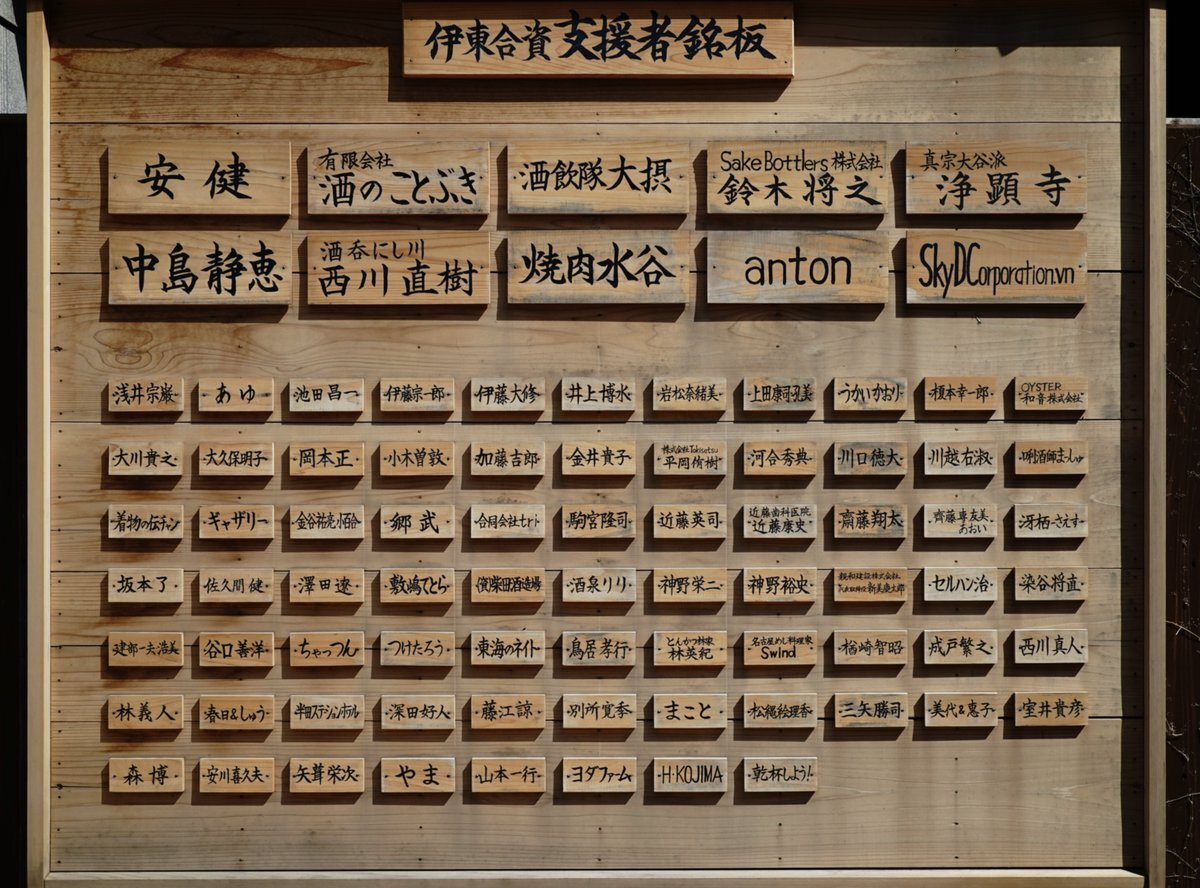 伊東合資支援者銘板
安健
有限会社
酒のことぶき
酒飲隊大摂
Sake Bottlers 株式会社
鈴木将之
真宗大谷派
浄顕寺
中島静恵
酒呑にし川
西川直樹
焼肉水谷
anton
SkyDCorporation.vn
浅井宗巌
あゆ
池田昌一
伊藤宗一郎
伊藤大修
井上博水
岩松奈緒美
上田康司孔美
うかいかおり
榎本幸一郎
OYSTER
和音株式会社
大川貴之
大久保明子
岡本正
小木曽敦
加藤吉郎
金井貴子
株式会社Tokisetsu
平岡侑樹
河合秀典
川口徳大
川越右淑
唎酒師まっしゅ
着物の伝チャン
ギャザリー
金谷祐亮小百合
郷武
合同会社trt
駒宮隆司
近藤英司
近藤歯科医院
近藤康史
齋藤翔太
齊藤専友美
あおい
冴栖-さえす-
坂本了
佐久間健
澤田遼
敷嶋てとら
(資)柴田酒造場
酒泉リリ
神野栄二
神野裕史
親和建設株式会社
代表取締役 新美慶太郎
セルハン治
染谷将直
建部一夫浩美
谷口善洋
ちゃっつん
つけたろう
東海のネイト
鳥居孝行
とんかつ林家
林英紀
名古屋めし料理家
Swind
楢崎智昭
成戸繁之
西川真人
林義人
春日&しゅう
半田ステーションホテル
深田好人
藤江諒
別所寛季
まこと
松縄絵理香
三矢勝司
美代&恵子
室井貴彦
森博
安川喜久夫
矢茸栄次
やま
山本一行
ヨダファーム
H・KOJIMA
乾杯しよう!